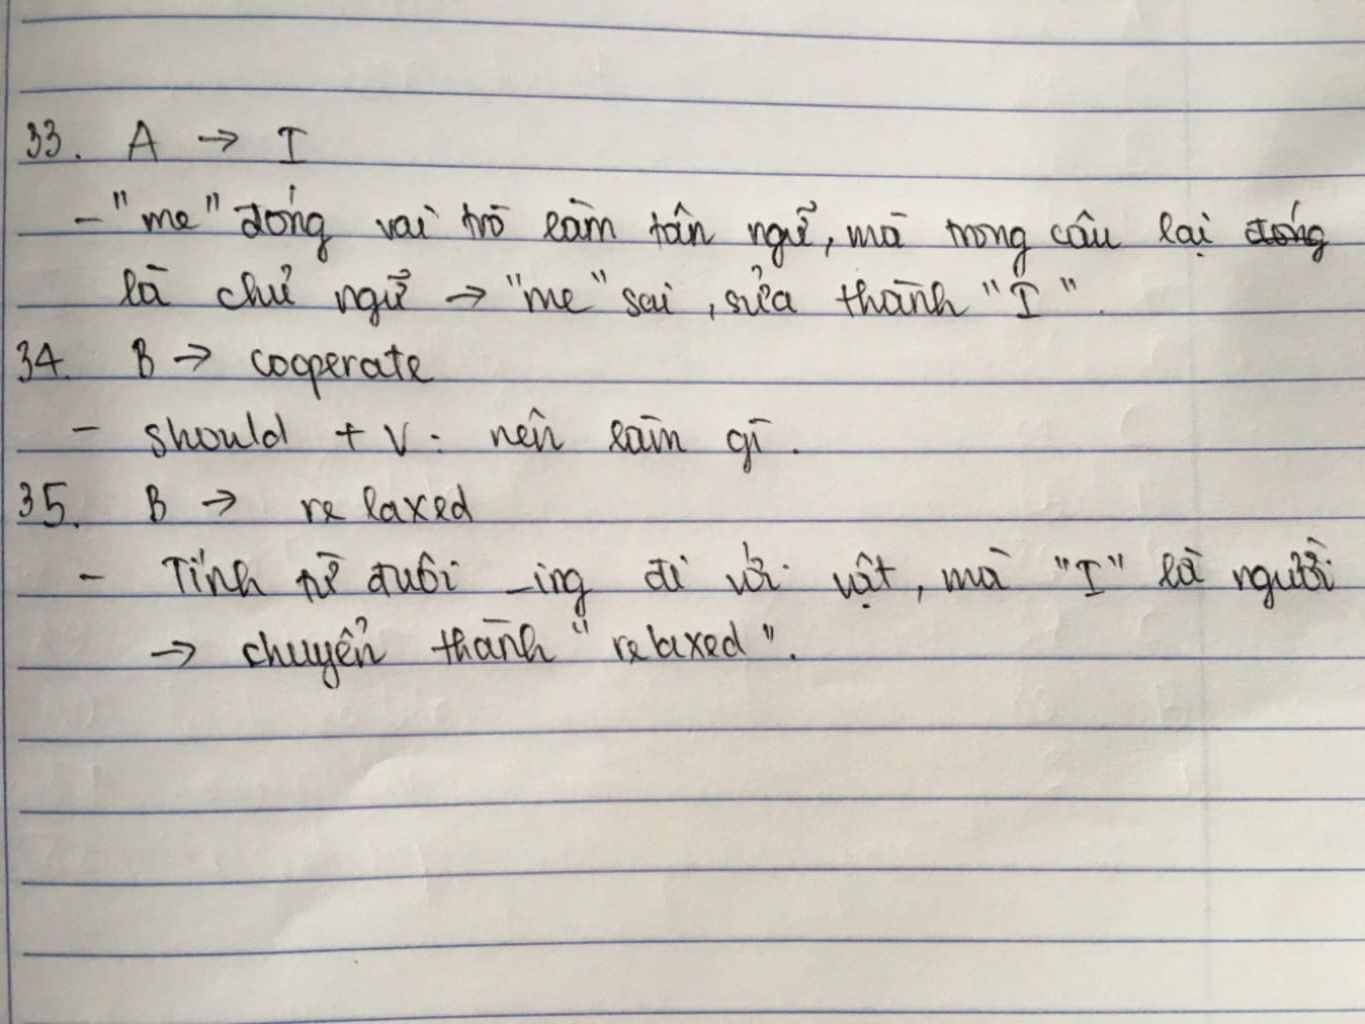 33. A → I
- "me" đóng vai trò làm tân ngữ, mà trong câu lại đóng
là chủ ngữ → "me" sai, sửa thành "I".
34. B → cooperate
- should + V: nên làm gì.
35. B → relaxed
- Tính từ đuôi _ing đi với vật, mà "I" là người
→ chuyển thành "relaxed".